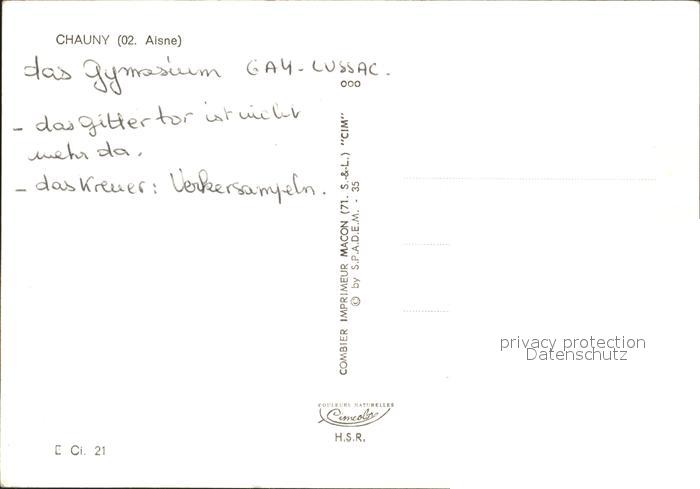 CHAUNY (02. Aisne)
das Gymnasium GAY-LUSSAC.
- das Gittertor ist nicht
mehr da.
- das Kreuer: Verkersampeln.
ooo
COMBIER IMPRIMEUR MACON (71. S.-&-L.) "CIM"
© by S.P.A.D.E.M. - 35
privacy protection
Datenschutz
COULEURS NATURELLES
Cimcolor
H.S.R.
E Ci. 21